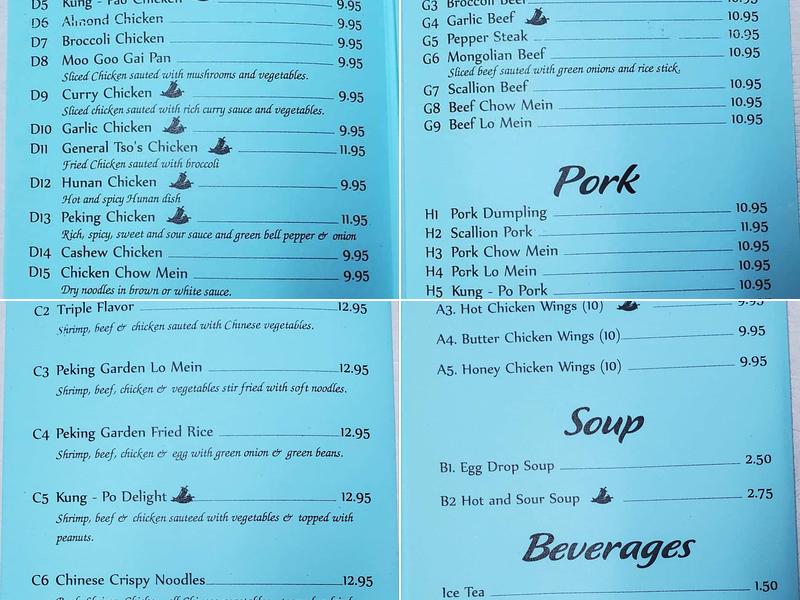 D5 Kung - Pao Chicken 9.95
D6 Almond Chicken 9.95
D7 Broccoli Chicken 9.95
D8 Moo Goo Gai Pan 9.95
Sliced Chicken sauted with mushrooms and vegetables.
D9 Curry Chicken 9.95
Sliced chicken sauted with rich curry sauce and vegetables.
D10 Garlic Chicken 9.95
D11 General Tso's Chicken 11.95
Fried Chicken sauted with broccoli
D12 Hunan Chicken 9.95
Hot and spicy Hunan dish
D13 Peking Chicken 11.95
Rich, spicy, sweet and sour sauce and green bell pepper & onion
D14 Cashew Chicken 9.95
D15 Chicken Chow Mein 9.95
Dry noodles in brown or white sauce.
G3 Broccoli Beef 10.95
G4 Garlic Beef 10.95
G5 Pepper Steak 10.95
G6 Mongolian Beef 10.95
Sliced beef sauted with green onions and rice stick.
G7 Scallion Beef 10.95
G8 Beef Chow Mein 10.95
G9 Beef Lo Mein 10.95
Pork
H1 Pork Dumpling 10.95
H2 Scallion Pork 11.95
H3 Pork Chow Mein 10.95
H4 Pork Lo Mein 10.95
H5 Kung - Po Pork 10.95
C2 Triple Flavor 12.95
Shrimp, beef & chicken sauted with Chinese vegetables.
C3 Peking Garden Lo Mein 12.95
Shrimp, beef, chicken & vegetables stir fried with soft noodles.
C4 Peking Garden Fried Rice 12.95
Shrimp, beef, chicken & egg with green onion & green beans.
C5 Kung - Po Delight 12.95
Shrimp, beef & chicken sauteed with vegetables & topped with
peanuts.
C6 Chinese Crispy Noodles 12.95
A3. Hot Chicken Wings (10) 9.95
A4. Butter Chicken Wings (10) 9.95
A5. Honey Chicken Wings (10) 9.95
Soup
B1. Egg Drop Soup 2.50
B2 Hot and Sour Soup 2.75
Beverages
Ice Tea 1.50